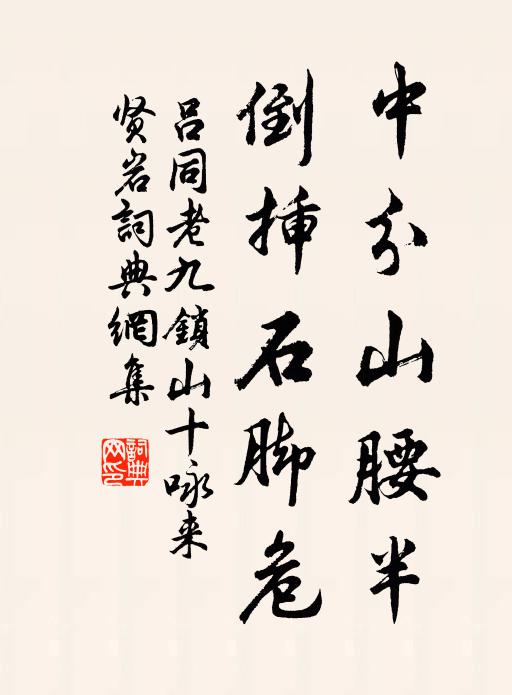 中分山腰半
倒挿石脚危
吕同老九鎖山十咏来
贤岩詞典網集
詞典
网印